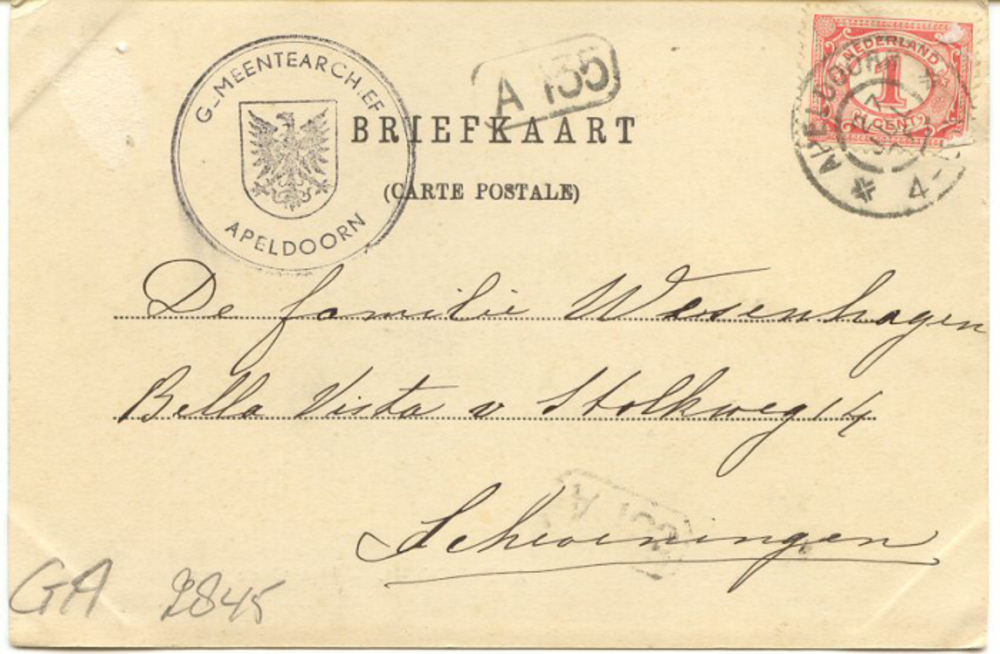 G_MEENTEARCH.EF
APELDOORN
A 135
BRIEFKAART
(CARTE POSTALE)
NEDERLAND
1
CENT
APELDOORN
4-
De familie Wesenhagen
Bella Vista v Stolkweg 14
Scheveningen
GA 9845